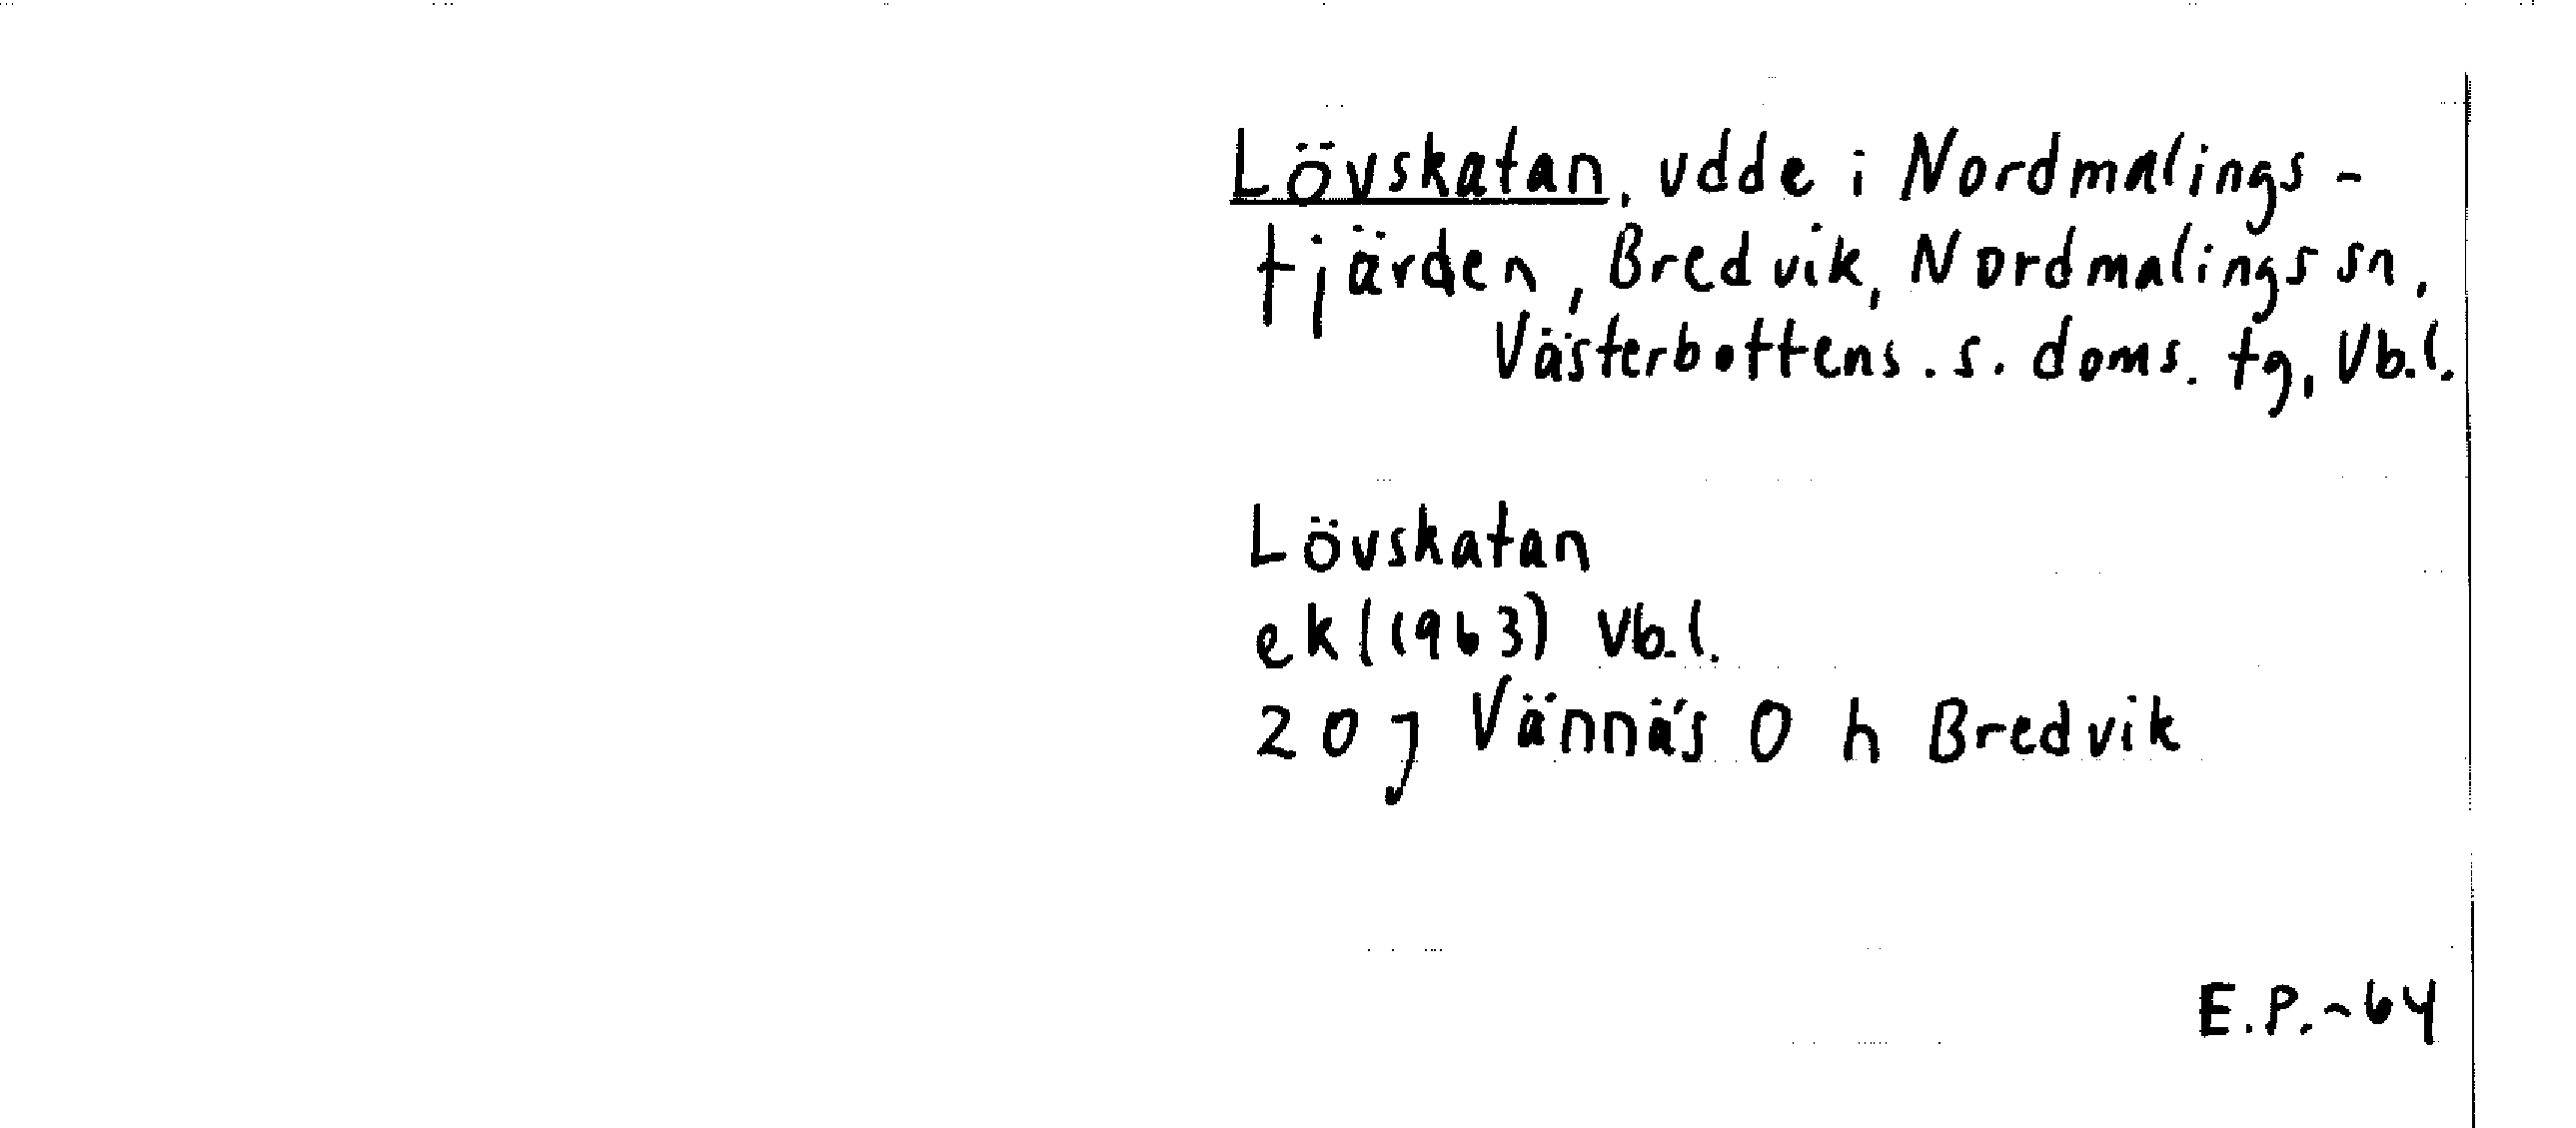 Lövskatan, udde i Nordmalings-
fjärden, Bredvik, Nordmalings sn,
Västerbottens. s. doms. tg, Vb.l.
Lövskatan
ekl(1963) Vb.l.
20 J Vännäs O h Bredvik
E.P.-64